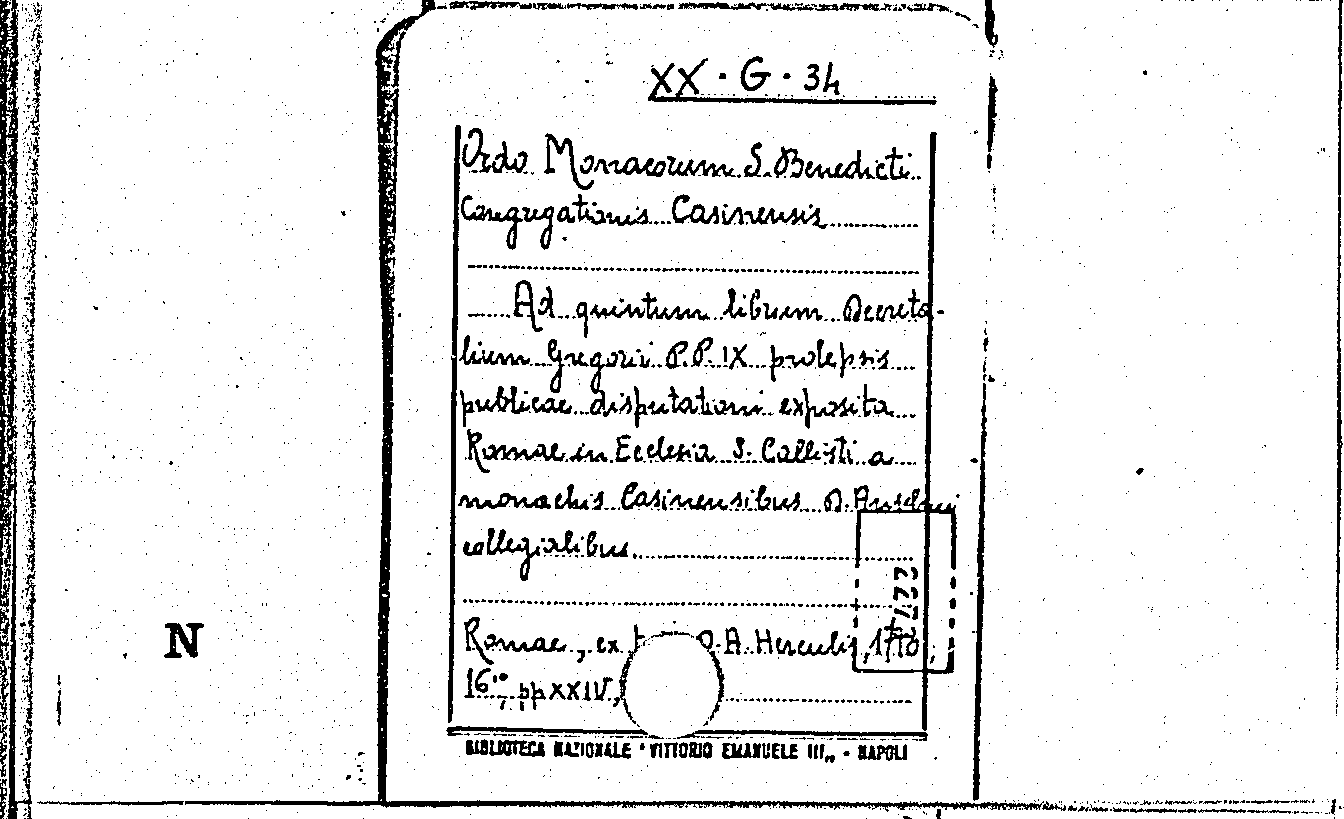 XX · G · 34
Ordo Monacorum S. Benedicti
Congregationis Casinensis
Ad quintum librum Decreta-
lium Gregorii P.P. IX prolepsis
publicae disputationi exposita
Romae in Ecclesia S. Callisti a
monachis Casinensibus D. Anselmi
collegialibus.
Romae, ex A. Herculis,
16° pp XXIV,
N
BIBLIOTECA NAZIONALE "VITTORIO EMANUELE III„ - NAPOLI